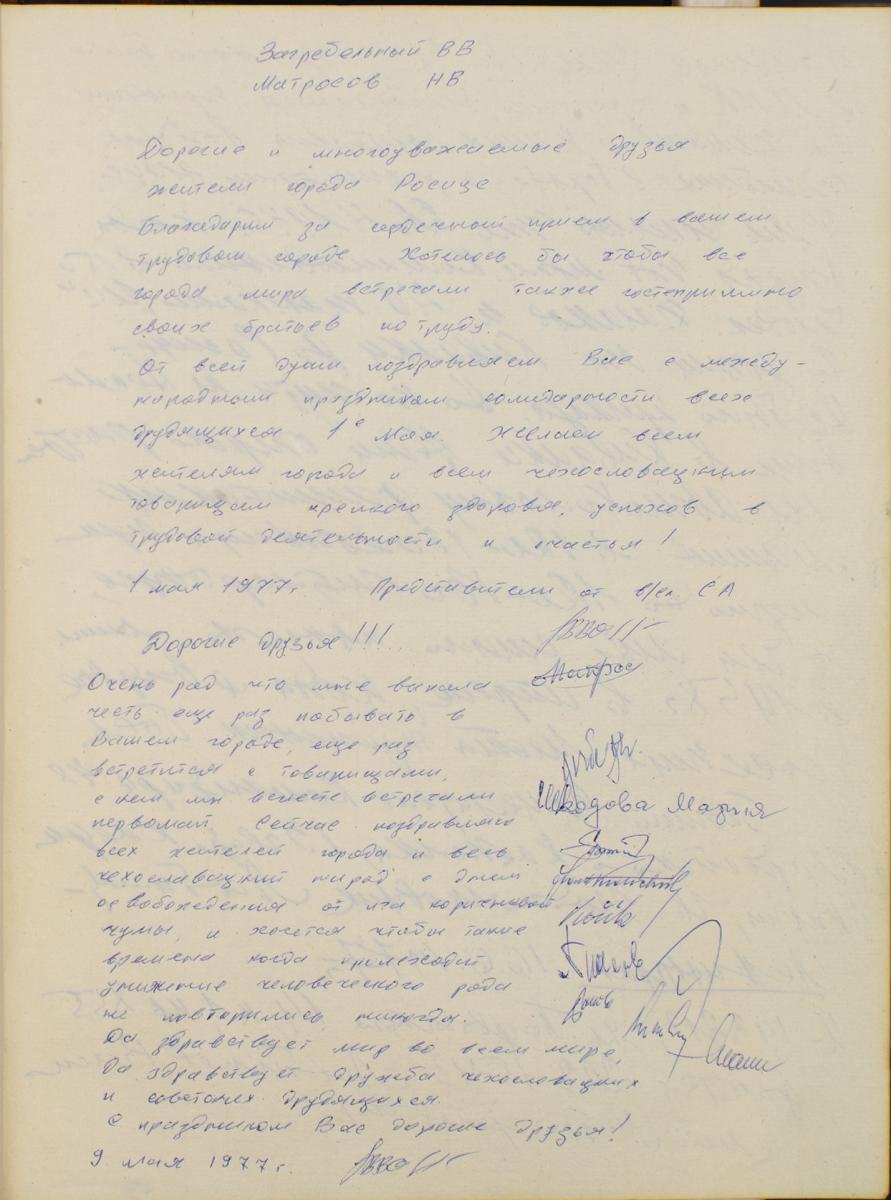 Загребельный ВВ
Матросов НВ
Дорогие и многоуважаемые друзья
жители города Росице
Благодарим за сердечный прием в вашем
трудовом городе Хотелось бы чтобы все
города мира встречали также гостеприимно
своих братьев по труду.
От всей души поздравляем Вас с между-
народным праздником солидарности всех
трудящихся 1е Мая. Желаем всем
жителям города и всем чехословацким
товарищам крепкого здоровья, успехов в
трудовой деятельности и счастья!
1 мая 1977г. Представители от в/сл. СА
Дорогие друзья!!!
Очень рад что мне выпала
честь еще раз побывать в
Вашем городе, еще раз
встретится с товарищами,
с кем мы вместе встречали
первомай Сейчас поздравляю
всех жителей города и весь
чехославацкий народ с днем
освобождения от ига коричневой
чумы, и хочется чтобы такие
времена когда происходит
унижение человеческого рода
не повторились никогда.
Да здравствует мир во всем мире,
Да здравствует дружба чехославацких
и советских трудящихся.
С праздником Вас дорогие друзья!
9 мая 1977г.
Матрос
Шкодова Мария